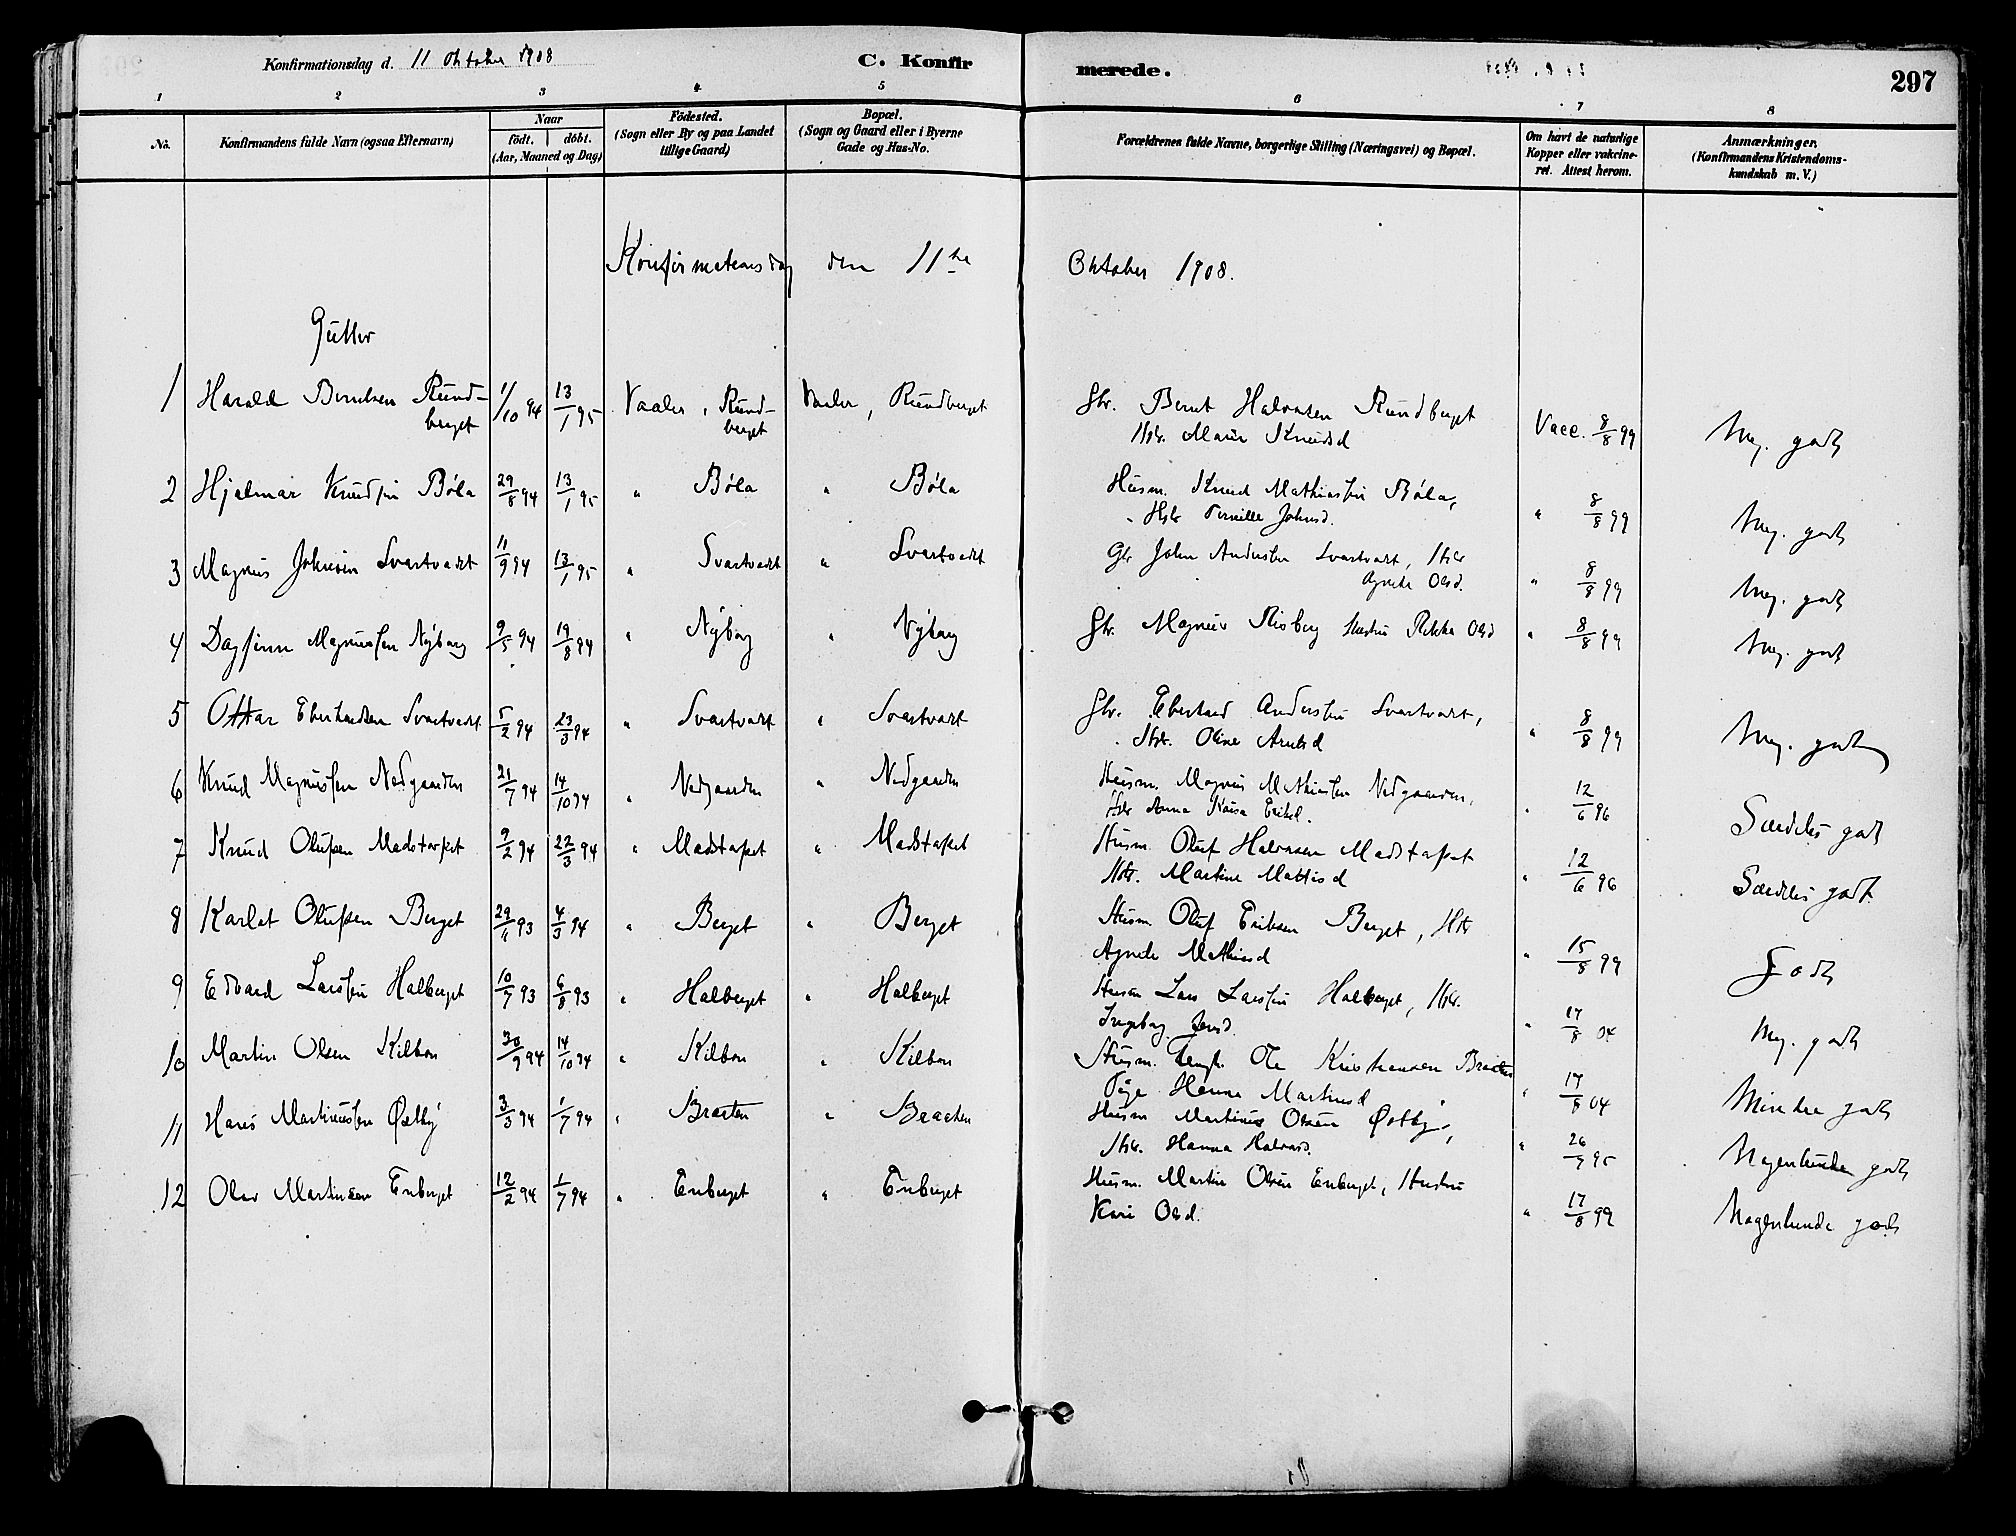 Konfirmationsdag d. 11 Oktober 1908
C. Konfirmerede.
297
1 2 3 4 5 6 7 8
No.
Konfirmandens fulde Navn (ogsaa Efternavn)
Naar
födt. döbt.
(Aar, Maaned og Dag)
Födested.
(Sogn eller By og paa Landet
tillige Gaard)
Bopæl.
(Sogn og Gaard eller i Byerne
Gade og Hus-No.
Forældrenes fulde Navne, borgerlige Stilling (Næringsvei) og Bopæl.
Om havt de naturlige
Kopper eller vakcine-
ret. Attest herom.
Anmærkninger.
(Konfirmandens Kristendoms-
kundskab m. V.)
Konfirmationsdag den 11te Oktober 1908.
Gutter
1 Harald Berntsen Rund- 1/10 94 13/1 95 Vaaler, Rund- Vaaler, Rundberget Gbr. Bernt Halvorsen Rundberget
berget berget Hstr. Marie Knudsd Vacc. 8/8 99 Meg. godt
2 Hjalmar Knudsen Böla 29/8 94 13/1 95 " Böla " Böla Husm. Knud Mathiassen Böla,
Hstr Pernille Johnsd. " 8/8 99 Meg. godt
3 Magnus Johnsen Svartvadt 11/9 94 13/1 95 " Svartvadt " Svartvadt Gbr John Andersen Svartvadt, Hstr
Agnete Olsd. " 8/8 99 Meg. godt
4 Dagfinn Magnussen Nyborg 9/5 94 19/8 94 " Nyborg " Nyborg Gbr. Magnus Risberg Hustru Rikka Olsd " 8/8 99 Meg. godt
5 Ottar Eberhardsen Svartvadt 5/2 94 23/3 94 " Svartvadt " Svartvadt Gbr. Eberhard Andersen Svartvadt,
Hstr. Oline Arntsd " 8/8 99 Meg. godt
6 Knud Magnussen Nedgaarden 21/7 94 14/10 94 " Nedgaarden " Nedgaarden Husm. Magnus Mathiassen Nedgaarden,
Hstr Anna Kaisa Eriksd. " 12/6 96 Særdeles godt
7 Knud Olufsen Madstorpet 9/2 94 22/3 94 " Madstorpet " Madstorpet Husm. Oluf Halvorsen Madstorpet
Hstr. Martine Mattisd " 12/6 96 Særdeles godt
8 Karlot Olufsen Berget 29/11 93 4/3 94 " Berget " Berget Husm Oluf Eriksen Berget, Hstr
Agnete Mathiasd " 15/8 99 Godt
9 Edvard Larssen Halberget 10/7 93 6/8 93 " Halberget " Halberget Husm Lars Larssen Halberget, Hstr.
Ingeborg Jensd. " 17/8 04 Meg. godt
10 Martin Olsen Kilbon 30/9 94 14/10 94 " Kilbon " Kilbon Ole Kristiansen Braaten
Pige Hanna Martinsd " 17/8 04 Mindre godt
11 Hans Martinussen Østby 3/3 94 1/7 94 " Braaten " Braaten Husm Martinus Olsen Østby,
Hstr. Hanna Halvorsd. " 26/9 95 Nogenlunde godt
12 Olav Martinsen Enberget 12/2 94 1/7 94 " Enberget " Enberget Husm. Martin Olsen Enberget, Hustru
Kari Olsd. " 17/8 99 Nogenlunde godt